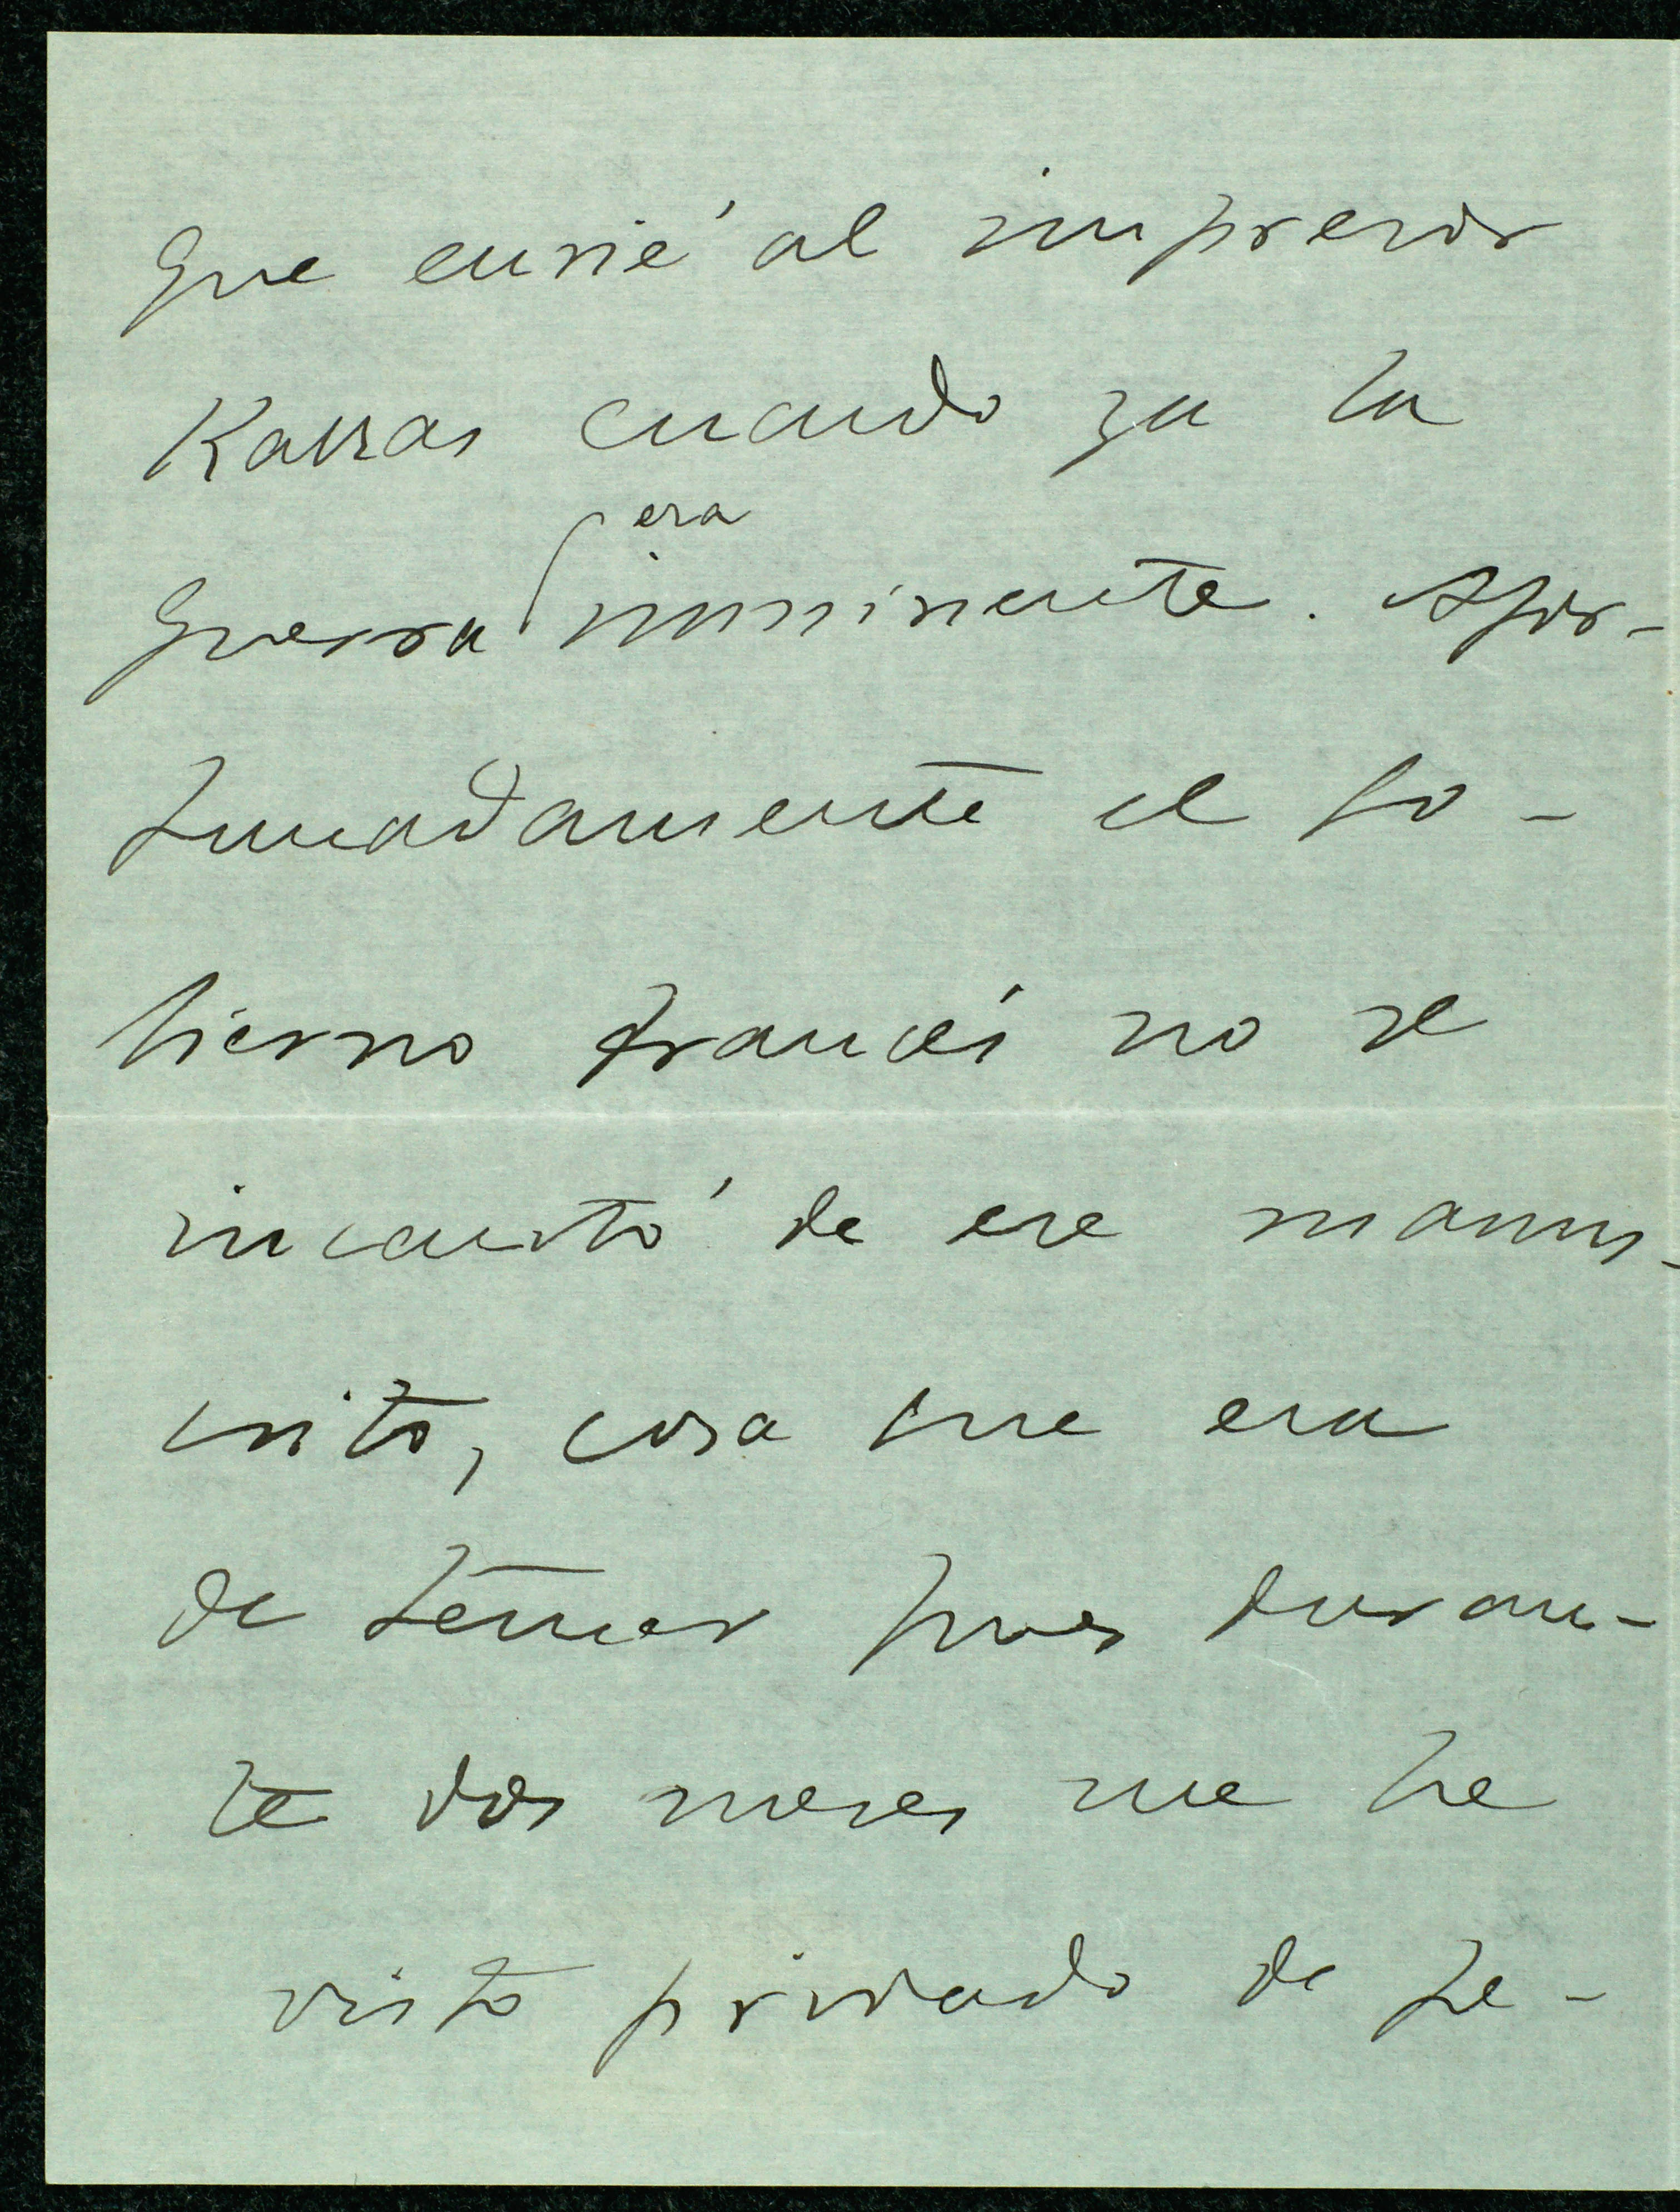 que envié al impresor
Karras cuando ya la
era
guerra inminente. Afor-
tunadamente el go-
bierno francés no se
incautó de ese manus-
crito, cosa que era
de temer pues duran-
te dos meses me he
visto privado de pe-